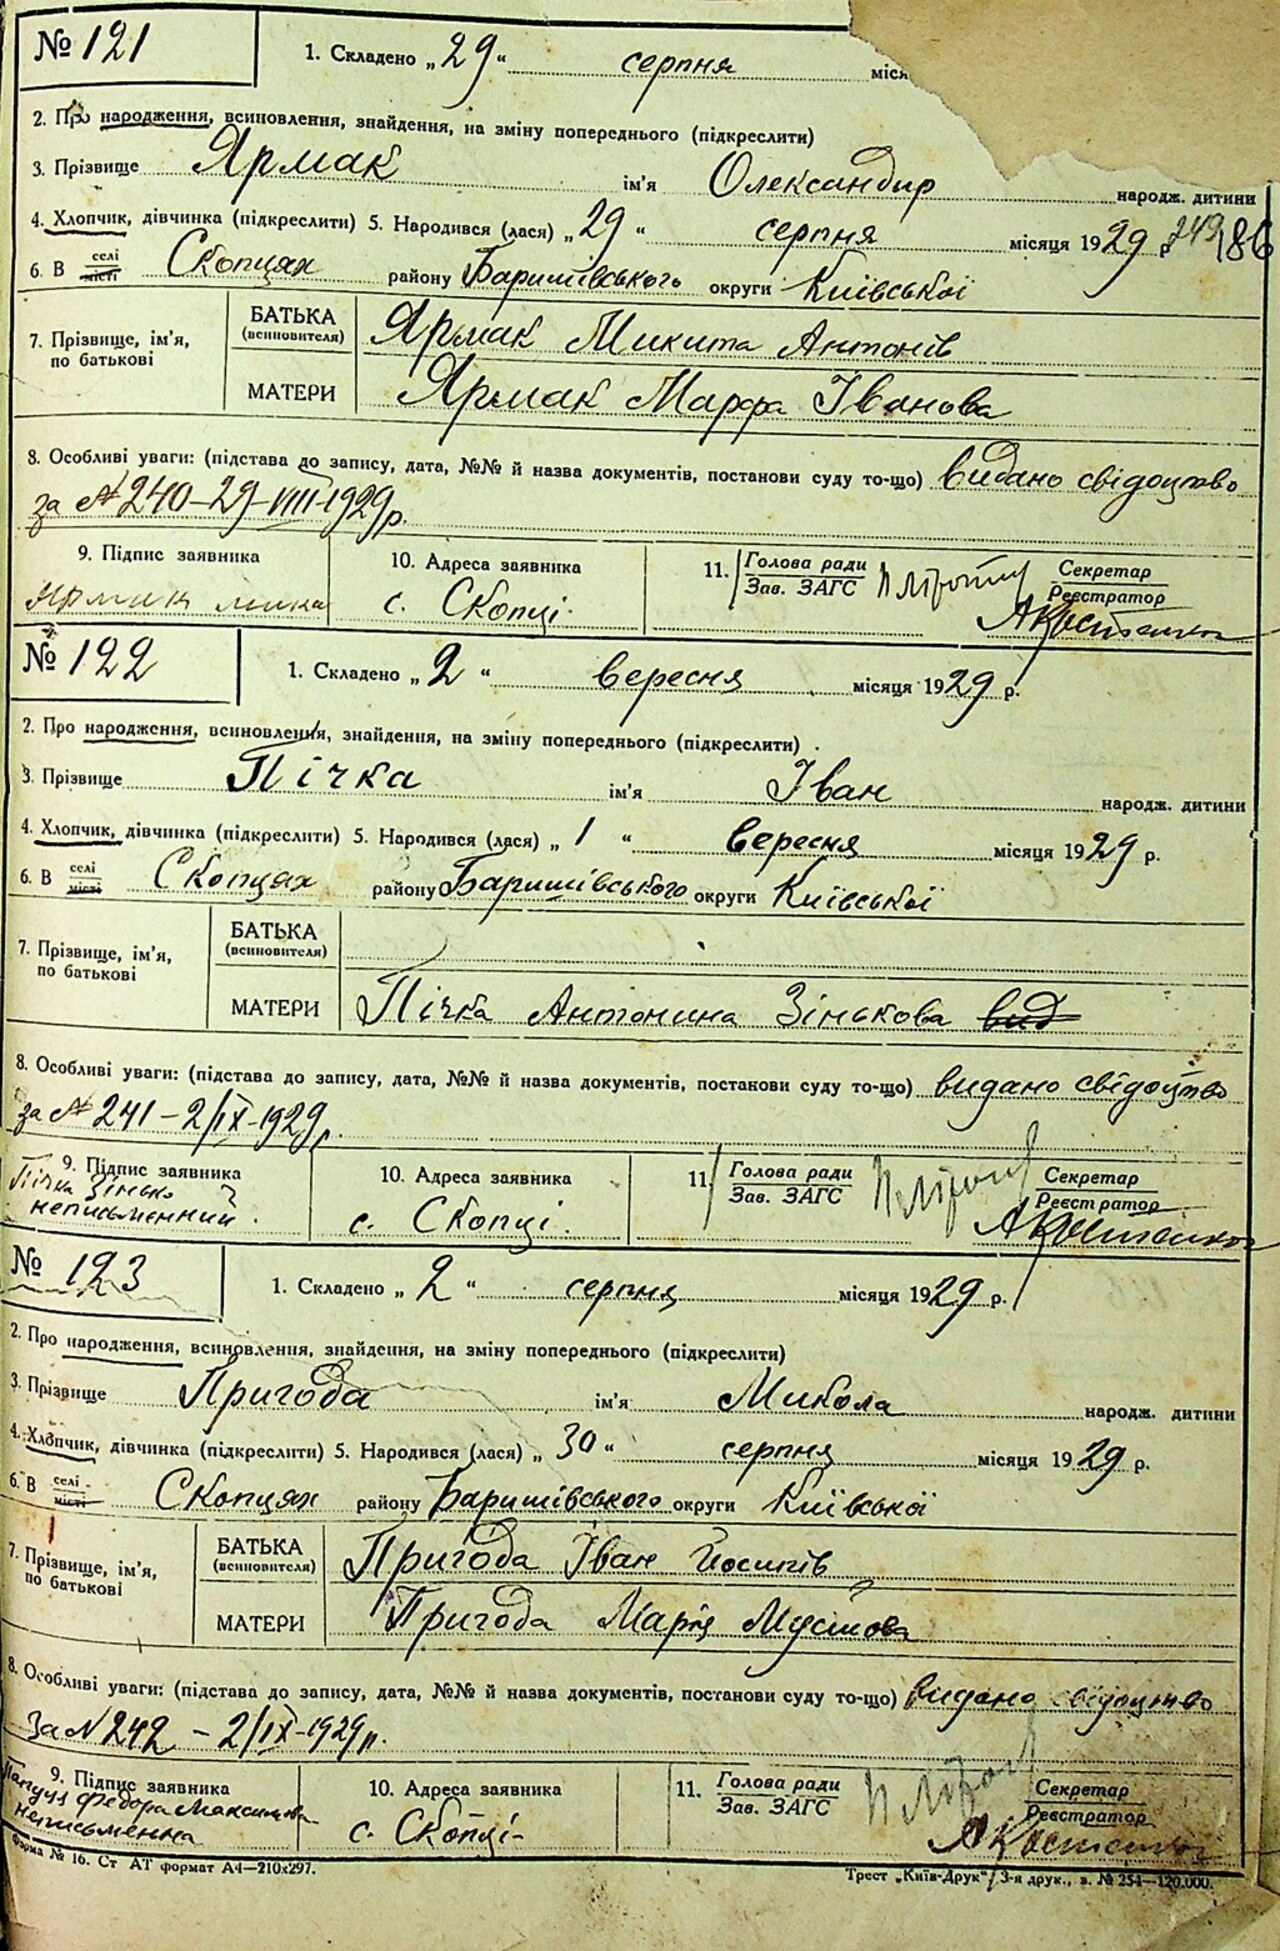 № 121 1. Складено „ 29 “ серпня міся
2. Про народження, всиновлення, знайдення, на зміну попереднього (підкреслити)
3. Прізвище Ярмак ім'я Олександир народж. дитини
4. Хлопчик, дівчинка (підкреслити) 5. Народився (лася) „ 29 “ серпня місяця 1929 р. 186
6. В селі місті Скопцях району Баришівського округи Київської
7. Прізвище, ім'я, по батькові БАТЬКА (всиновителя) Ярмак Микита Антонів
МАТЕРИ Ярмак Марфа Іванова
8. Особливі уваги: (підстава до запису, дата, №№ й назва документів, постанови суду то-що) видано свідоцтво
за № 240-29-VIII-1929р.
9. Підпис заявника 10. Адреса заявника 11. Голова ради Зав. ЗАГС Секретар Реєстратор
Ярмак мика с. Скопці А Костенко
№ 122 1. Складено „ 2 “ вересня місяця 1929 р.
2. Про народження, всиновлення, знайдення, на зміну попереднього (підкреслити)
3. Прізвище Пічка ім'я Іван народж. дитини
4. Хлопчик, дівчинка (підкреслити) 5. Народився (лася) „ 1 “ вересня місяця 1929 р.
6. В селі місті Скопцях району Баришівського округи Київської
7. Прізвище, ім'я, по батькові БАТЬКА (всиновителя)
МАТЕРИ Пічка Антонина Зінькова вид
8. Особливі уваги: (підстава до запису, дата, №№ й назва документів, постанови суду то-що) видано свідоцтво
за № 241 - 2/IX-1929р.
9. Підпис заявника 10. Адреса заявника 11. Голова ради Зав. ЗАГС Секретар Реєстратор
Пічка Зінько
неписьменний. с. Скопці. А Костенко
№ 123 1. Складено „ 2 “ серпня місяця 1929 р.
2. Про народження, всиновлення, знайдення, на зміну попереднього (підкреслити)
3. Прізвище Пригода ім'я Микола народж. дитини
4. Хлопчик, дівчинка (підкреслити) 5. Народився (лася) „ 30 “ серпня місяця 1929 р.
6. В селі місті Скопцях району Баришівського округи Київської
7. Прізвище, ім'я, по батькові БАТЬКА (всиновителя) Пригода Іван Йосипів
МАТЕРИ Пригода Марія
8. Особливі уваги: (підстава до запису, дата, №№ й назва документів, постанови суду то-що) видано свідоцтво
за № 242 - 2/IX-1929р.
9. Підпис заявника 10. Адреса заявника 11. Голова ради Зав. ЗАГС Секретар Реєстратор
Федора Максимова
неписьменна с. Скопці- А Костенко
Форма № 16. Ст АТ формат А4—210х297. Трест „Київ-Друк“ 3-я друк., з. № 254—120.000.